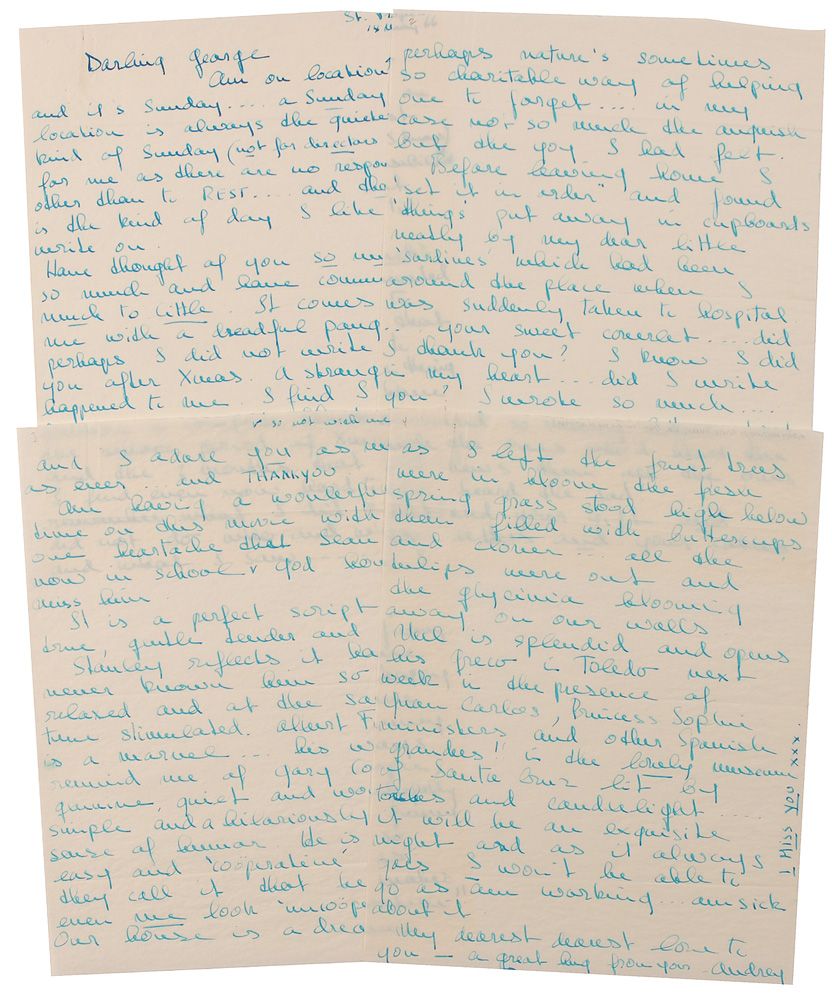 St.
Darling George
Am on location
and it's Sunday.... a Sunday
location is always the quiete
kind of Sunday (not for directors
for me as there are no respon
other than to REST... and the
is the kind of day I like
write on.
Have thought of you so mu
so much and have commu
much to little. It comes
me with a dreadful pang..
perhaps I did not write
you after Xmas. A strang
happened to me. I find I
perhaps nature's sometimes
so charitable way of helping
one to forget..... in my
case not so much the anguish
but the joy I had felt.
Before leaving home I
"set it in order" and found
'things' put away in cupboards
neatly by my dear little
'sarlines' which had been
around the place when I
was suddenly taken to hospital
.. your sweet coverlet.... did
I thank you? I know I did
in my heart.... did I write
you? I wrote so much....
and I adore you as m
as ever.. and THANKYOU
Am having a wonderfu
time on this movie with
one heartache that Sean
now in school & God how
miss him
It is a perfect script
true, gentle tender and
Stanley reflects it ha
never known him so
relaxed and at the sa
time stimulated. Albert F
is a marvel... his w
remind me of Gary Co
genuine, quiet and wo
simple and a hilariously
sense of humour. He is
easy and 'cooperative'
they call it that he
even me look 'uncoope
Our house is a drea
as I left the fruit trees
were in bloom the fresh
spring grass stood high below
them filled with buttercups
and clover.. all the
tulips were out and
the glycinia blooming
away on our walls
Mel is splendid and opens
his Greco in Toledo next
week in the presence of
Juan Carlos, Princess Sophie
ministers and other Spanish
'grandees'! in the lovely museum
of Santa Cruz lit by
torches and candlelight.....
it will be an exquisite
night and as it always
goes I won't be able to
go as am working... am sick
about it
My dearest dearest love to
you — a great hug from your Audrey
I MISS YOU xxx